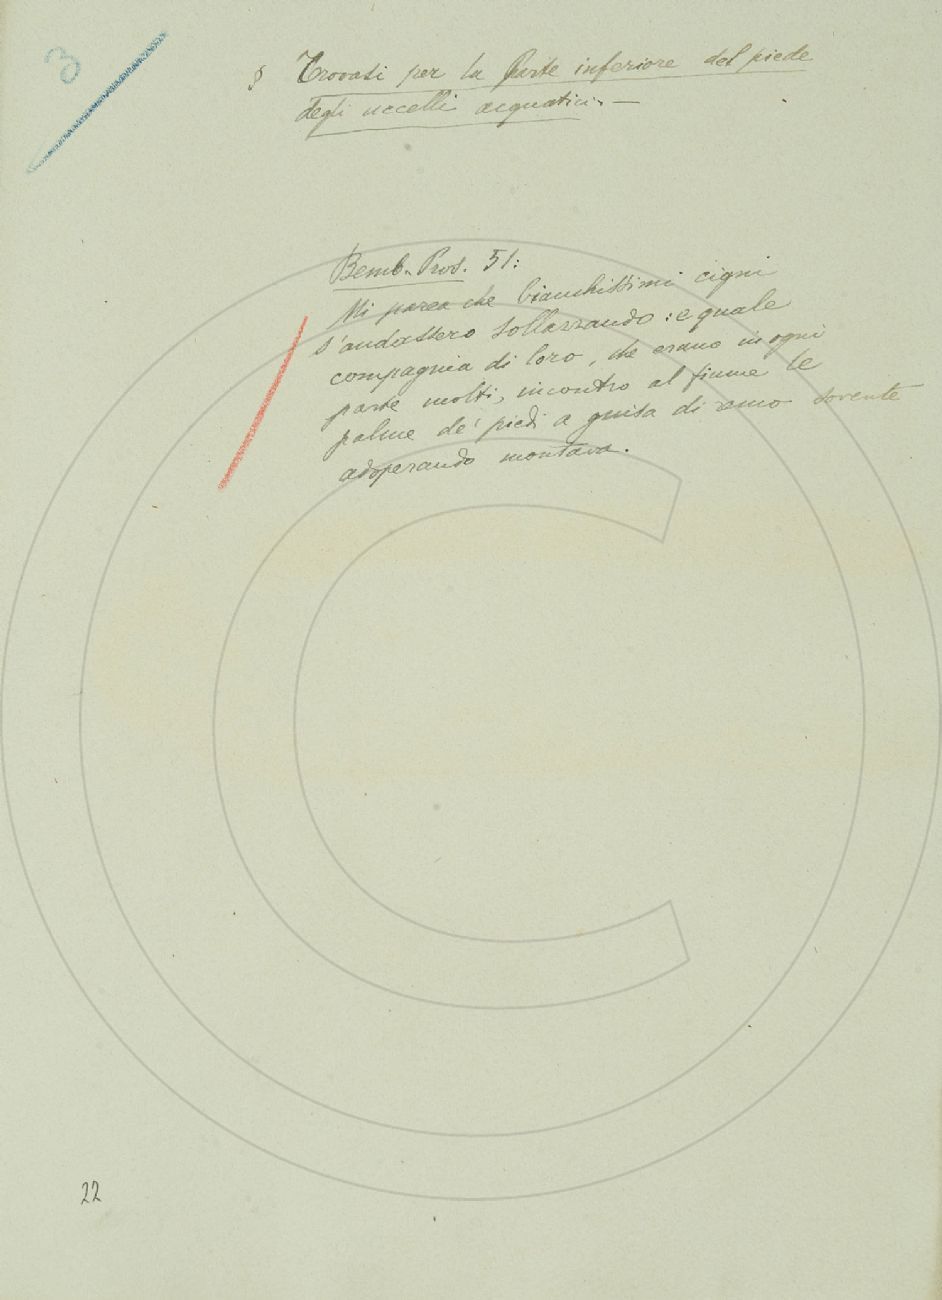 3
§ Trovasi per la Parte inferiore del piede
degli uccelli acquatici. —
Bemb. Pros. 51:
Mi parea che bianchissimi cigni
s'andassero sollazzando: e quale
compagnia di loro, che erano in ogni
parte molti, incontro al fiume le
palme de' piedi a guisa di remo sovente
adoperando montava.
22